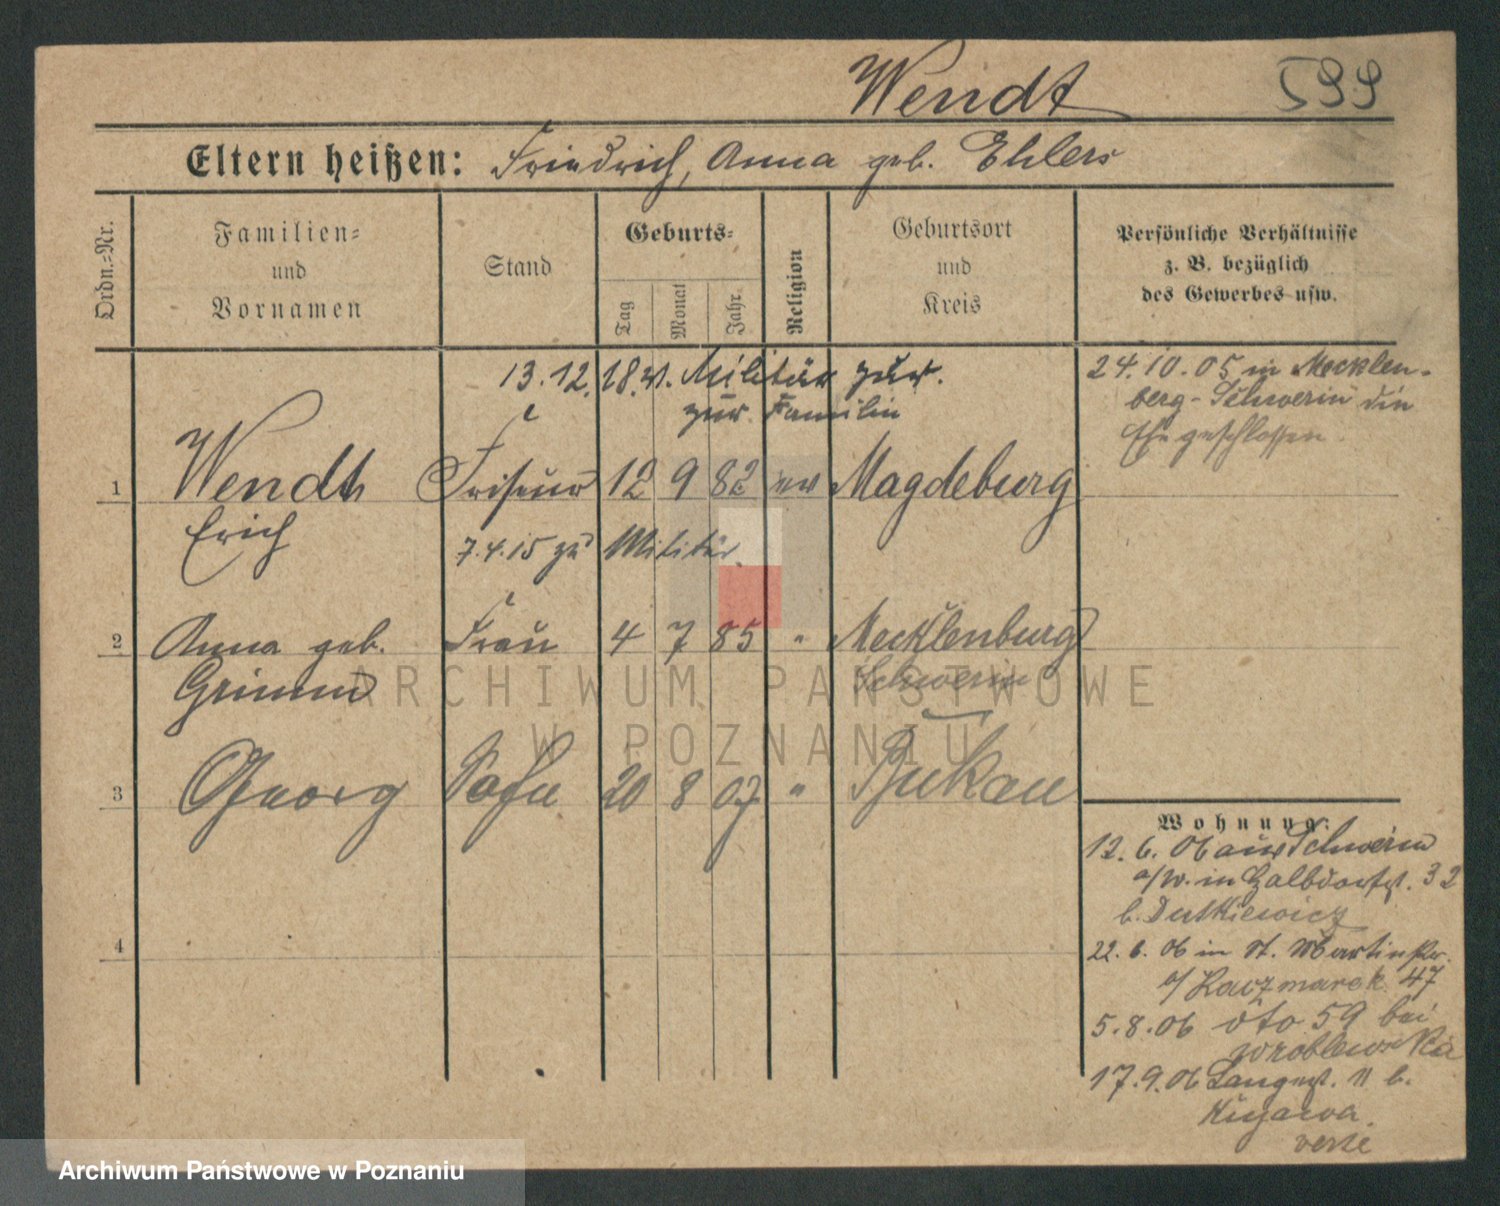 Wendt 599
Eltern heißen: Friedrich, Anna geb. Ehlers
Ordn.-Nr.
Familien-
und
Vornamen
Stand
Geburts-
Tag
Monat
Jahr
Religion
Geburtsort
und
Kreis
Persönliche Verhältnisse
z. B. bezüglich
des Gewerbes usw.
13.12.18. v. Militär zur.
zur Familie
24.10.05 in Mecklen-
berg-Schwerin die
Ehe geschlossen.
1 Wendt Friseur 12 9 82 ev Magdeburg
Erich 7.4.15 zu Militär
2 Anna geb. Frau 4 7 85 " Mecklenburg
Grimm Schwerin
3 Georg Sohn 20 8 07 "
4
Wohnung:
12.6.06 aus Schwerin
a/W. in Halbdorfst. 32
b. Dutkiewicz
22.6.06 in St. Martinstr.
b/ Kaczmarek 47
5.8.06 dto 59 bei
Wroblewska
17.9.06 Langest. 11 b.
Kujawa.
verte
ARCHIWUM PAŃSTWOWE
W POZNANIU
Archiwum Państwowe w Poznaniu